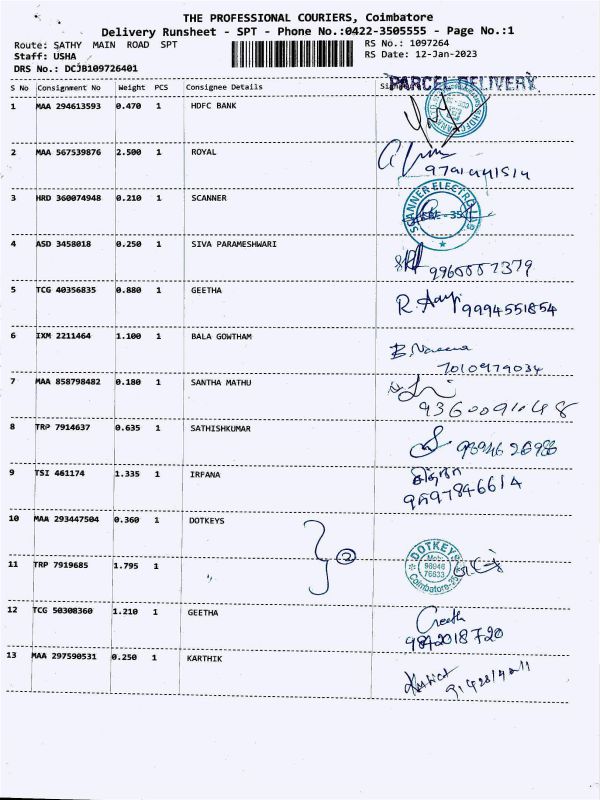 THE PROFESSIONAL COURIERS, Coimbatore
Delivery Runsheet - SPT - Phone No.:0422-3505555 - Page No.:1
Route: SATHY MAIN ROAD SPT
RS No.: 1097264
Staff: USHA
RS Date: 12-Jan-2023
DRS No.: DCJB109726401
S No Consignment No Weight PCS Consignee Details
PARCEL DELIVERY
1 MAA 294613593 0.470 1 HDFC BANK
2 MAA 567539876 2.500 1 ROYAL
3 HRD 360074948 0.210 1 SCANNER
SCANNER ELECTRO LAB
4 ASD 3458018 0.250 1 SIVA PARAMESHWARI
5 TCG 40356835 0.880 1 GEETHA
9994551854
6 IXM 2211464 1.100 1 BALA GOWTHAM
7010979034
7 MAA 858798482 0.180 1 SANTHA MATHU
8 TRP 7914637 0.635 1 SATHISHKUMAR
9 TSI 461174 1.335 1 IRFANA
9597846614
10 MAA 293447504 0.360 1 DOTKEYS
2
DOTKEYS
Mob:
96946
76633
11 TRP 7919685 1.795 1 "
12 TCG 50308360 1.210 1 GEETHA
Geetha
9842018720
13 MAA 297590531 0.250 1 KARTHIK